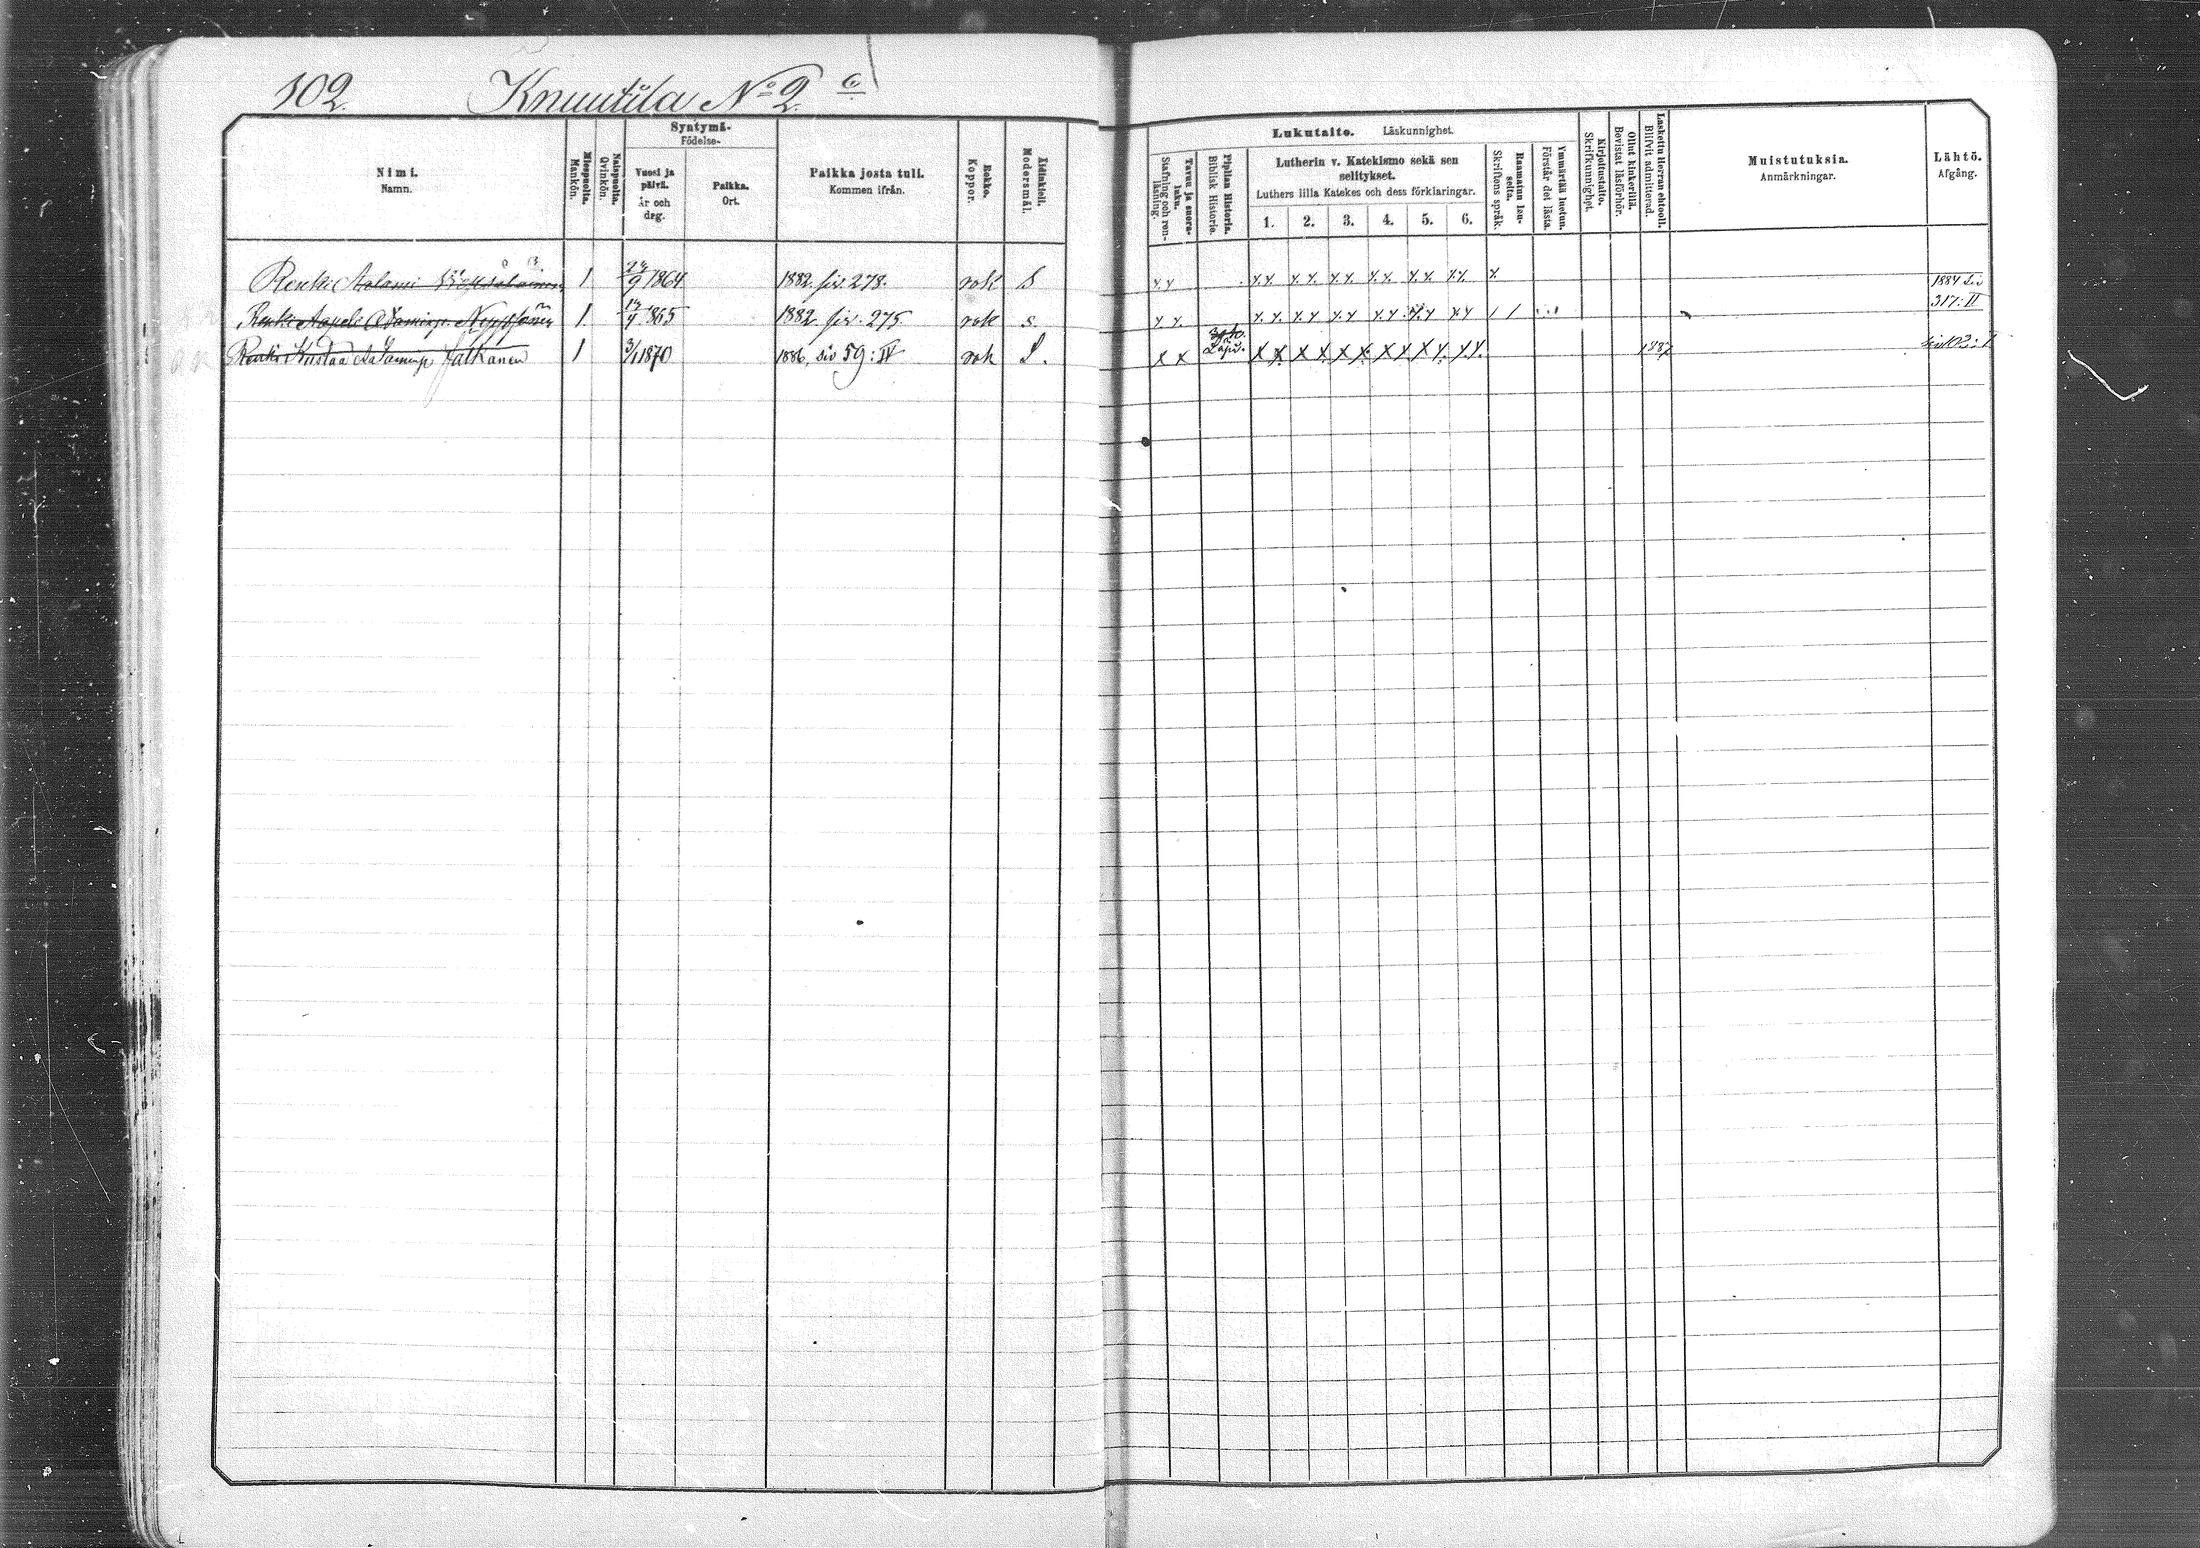 102.
Knuutila No 2.
Nimi.
Namn.
Miespuolia.
Mankön.
Naispuolia.
Qvinkön.
Syntymä-
Födelse-
Vuosi ja päivä.
År och dag.
Paikka.
Ort.
Paikka josta tuli.
Kommen ifrån.
Rokko.
Koppor.
Äidinkieli.
Modersmål.
Tavuu ja suora-luku.
Stafning och ren-läsning.
Piplian Historia.
Biblisk Historie.
Lukutaito. Läskunnighet.
Lutherin v. Katekismo sekä sen
selitykset.
Luthers lilla Katekes och dess förklaringar.
1. 2. 3. 4. 5. 6.
Raamatun lau-seita.
Skriftens språk.
Ymmärtää luetun.
Förstår det lästa.
Kirjoitustaito.
Skrifkunnighet.
Ollut kinkerillä.
Bevistat läsförhör.
Laskettu Herran ehtooll.
Blifvit admitterad.
Muistutuksia.
Anmärkningar.
Lähtö.
Afgång.
Renki 1. 9 1864 1882 siv. 278. rok S 1884 siv
Renki Aapeli Adaminp. 1. 1865 1882. siv. 275. rok s. 317: II
Renki Kustaa Adaminp Jalkanen 1 3/1 1870 1886, siv 59: IV rok S. 1887